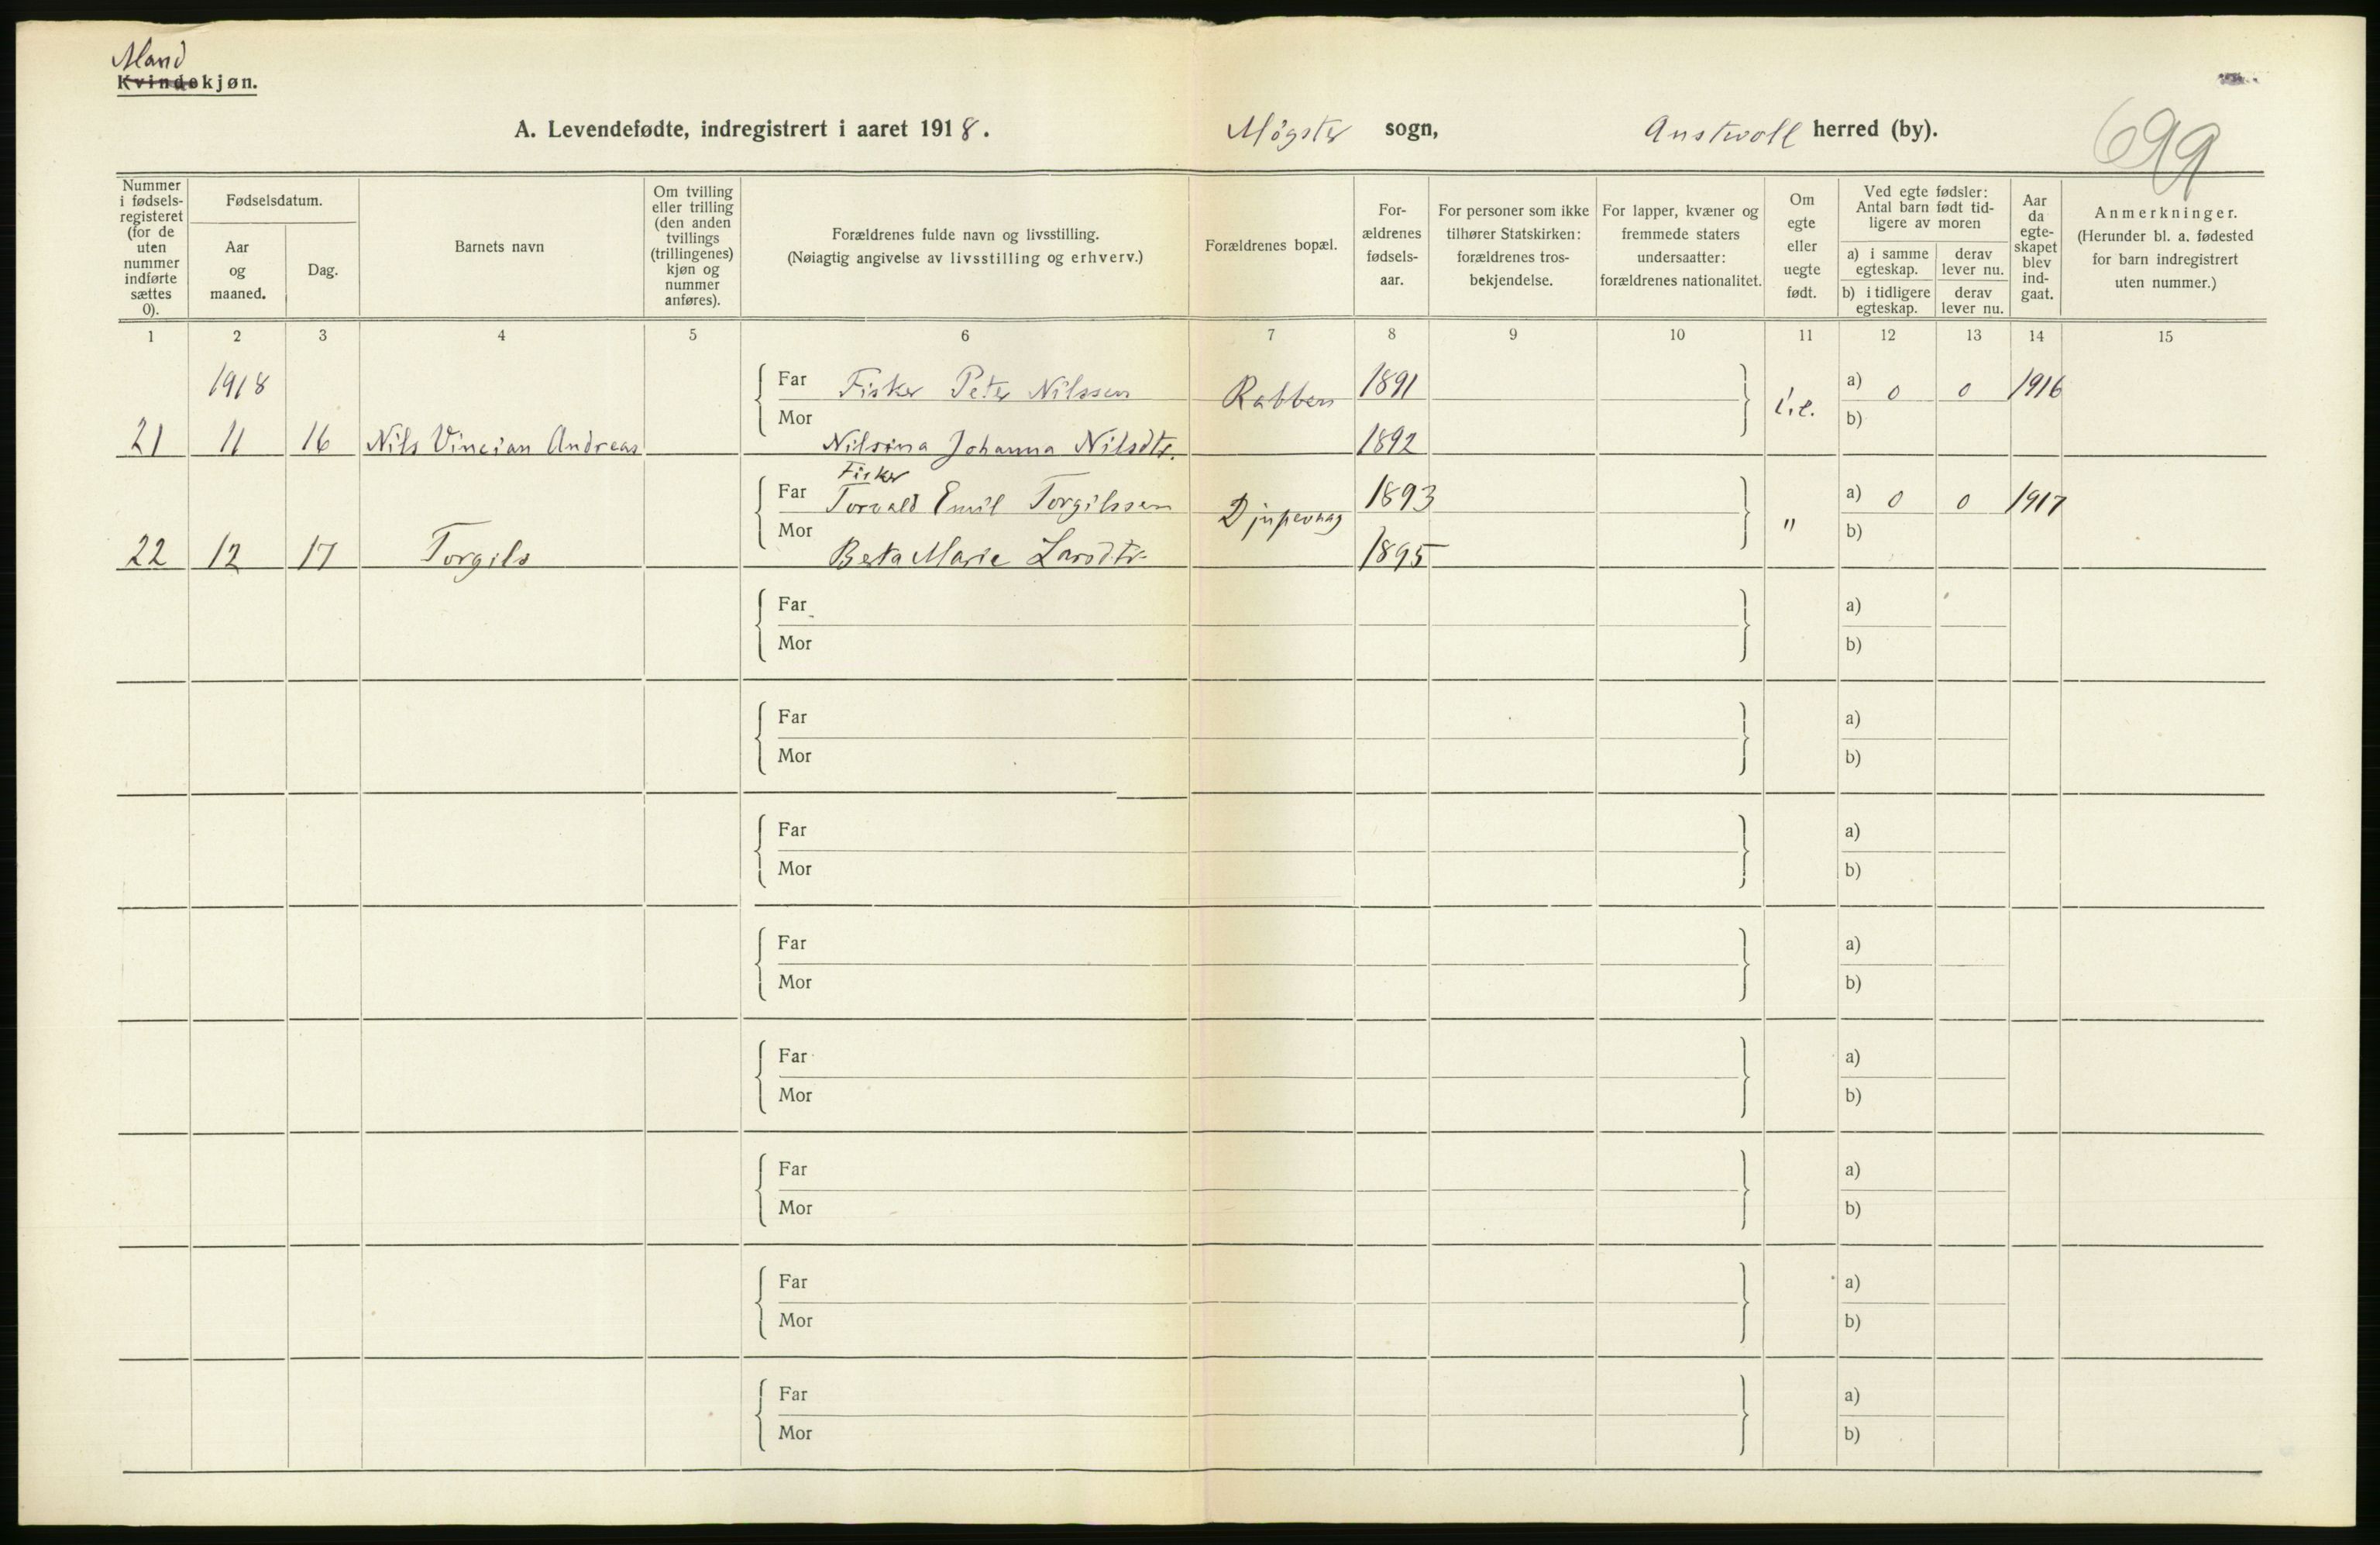 Mand
Kvindekjøn.
A. Levendefødte, indregistrert i aaret 1918. Møgster sogn, Austevoll herred (by).
699
Nummer i fødsels-registeret (for de uten nummer indførte sættes 0).
Fødselsdatum.
Aar og maaned.
Dag.
Barnets navn
Om tvilling eller trilling (den anden tvillings (trillingenes) kjøn og nummer anføres).
Forældrenes fulde navn og livsstilling.
(Nøiagtig angivelse av livsstilling og erhverv.)
Forældrenes bopæl.
For-ældrenes fødsels-aar.
For personer som ikke tilhører Statskirken: forældrenes tros-bekjendelse.
For lapper, kvæner og fremmede staters undersaatter: forældrenes nationalitet.
Om egte eller uegte født.
Ved egte fødsler: Antal barn født tid-ligere av moren
a) i samme egteskap.
derav lever nu.
b) i tidligere egteskap.
derav lever nu.
Aar da egte-skapet blev ind-gaat.
Anmerkninger.
(Herunder bl. a. fødested for barn indregistrert uten nummer.)
1 2 3 4 5 6 7 8 9 10 11 12 13 14 15
1918 Far Fisker Peter Nilssen Rabben 1891 a) 0 0 1916
21 11 16 Nils Vincian Andreas Mor Nilsina Johanna Nilsdtr. 1892 b)
Fisker
Far Torvald Emil Torgilssen Djupevaag 1893 " a) 0 0 1917
22 12 17 Torgils Mor Berta Marie Larsdtr 1895 b)
Far a)
Mor b)
Far a)
Mor b)
Far a)
Mor b)
Far a)
Mor b)
Far a)
Mor b)
Far a)
Mor b)
Far a)
Mor b)
Far a)
Mor b)